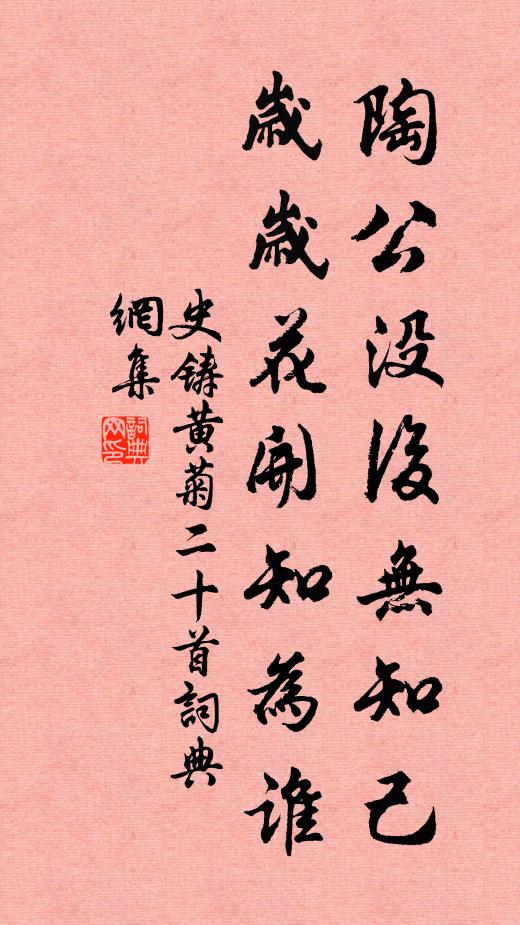 陶公没後無知己
歲歲花開知為誰
史鑄黄菊二十首詞典
網集
詞典網印